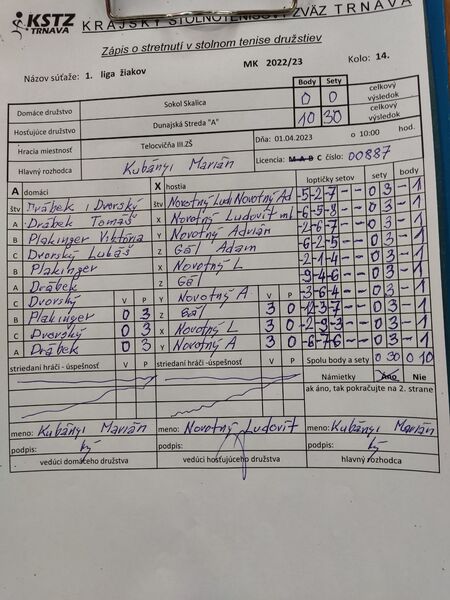 KSTZ TRNAVA KRAJSKÝ STOLNOTENISOVÝ ZVÄZ TRNAVA
Zápis o stretnutí v stolnom tenise družstiev
MK 2022/23 Kolo: 14.
Názov súťaže: 1. liga žiakov
Body Sety
Domáce družstvo Sokol Skalica 0 0 celkový výsledok
Hosťujúce družstvo Dunajská Streda "A" 10 30 celkový výsledok
Hracia miestnosť Telocvičňa III.ZŠ Dňa: 01.04.2023 o 10:00 hod.
Hlavný rozhodca Kubányi Marián Licencia: M A B C číslo: 00887
A domáci X hostia loptičky setov sety body
štv Drábek, Dvorský štv Novotný Lud Novotný Ad -5-2-7 - - 0 3 - 1
A Drábek Tomáš X Novotný Ludovít ml -6-5-8 - - 0 3 - 1
B Plakinger Viktória Y Novotný Adrián -2-6-7 - - 0 3 - 1
C Dvorský Lubáš Z Gál Adam -6-2-5 - - 0 3 - 1
B Plakinger X Novotný L -2-1-4 - - 0 3 - 1
A Drábek Z Gál -9-4-6 - - 0 3 - 1
C Dvorský V P Y Novotný A V P -3-6-4 - - 0 3 - 1
B Plakinger 0 3 Z Gál 3 0 -2-3-7 - - 0 3 - 1
C Dvorský 0 3 X Novotný L 3 0 -2-9-3 - - 0 3 - 1
A Drábek 0 3 Y Novotný A 3 0 -6-7-6 - - 0 3 - 1
striedaní hráči -úspešnosť V P striedaní hráči -úspešnosť V P Spolu body a sety 0 30 0 10
Námietky Áno Nie
ak áno, tak pokračujte na 2. strane
meno: Kubányi Marián meno: Novotný Ludovít meno: Kubányi Marián
podpis: podpis: podpis:
vedúci domáceho družstva vedúci hosťujúceho družstva hlavný rozhodca